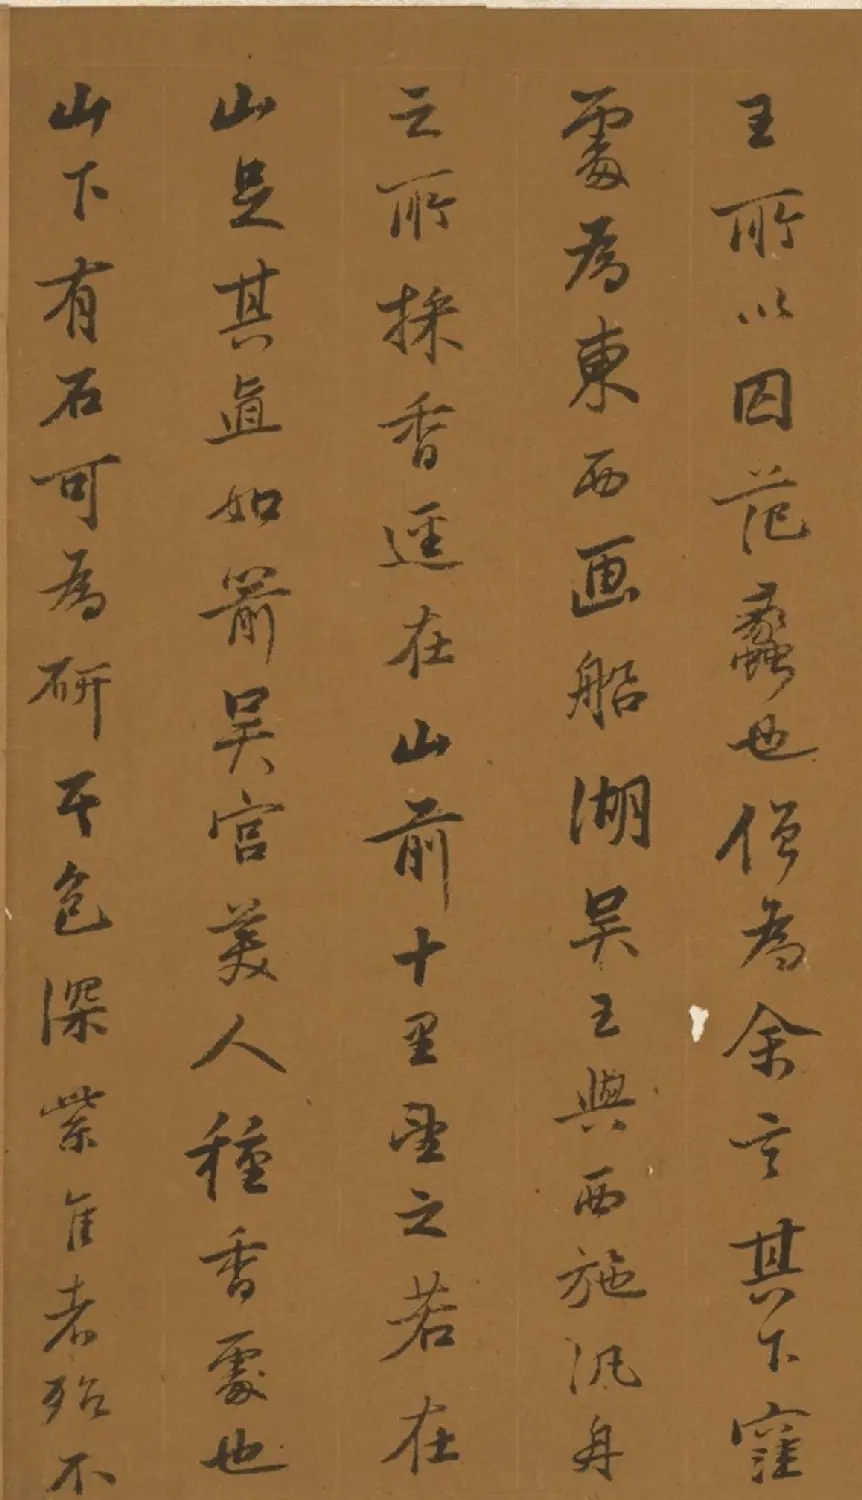 王所以囚范蠡也僧為余言其下窪
處為東西畫船湖吳王與西施汎舟
之所採香逕在山前十里望之若在
山足其直如箭吳宮美人種香處也
山下有石可為研其色深紫佳者殆不